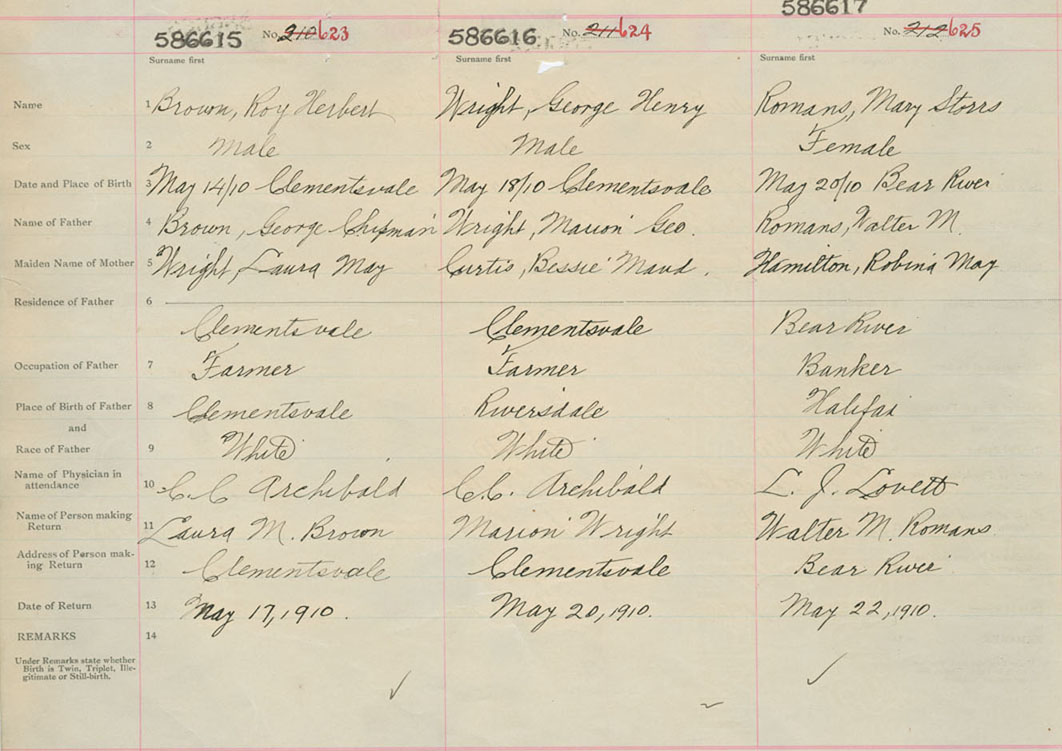 586617
586615 No. 210 623 586616 No. 211 624 No. 212 625
Surname first Surname first Surname first
Name 1 Brown, Roy Herbert Wright, George Henry Romans, Mary Storrs
Sex 2 Male Male Female
Date and Place of Birth 3 May 14/10 Clementsvale May 18/10 Clementsvale May 20/10 Bear River
Name of Father 4 Brown, George Chipman Wright, Marion Geo. Romans, Walter M.
Maiden Name of Mother 5 Wright, Laura May Curtis, Bessie Maud. Hamilton, Robina May
Residence of Father 6
Clementsvale Clementsvale Bear River
Occupation of Father 7 Farmer Farmer Banker
Place of Birth of Father 8 Clementsvale Riversdale Halifax
and
Race of Father 9 White White White
Name of Physician in
attendance 10 C.C Archibald C.C. Archibald L. J. Lovett
Name of Person making
Return 11 Laura M. Brown Marion Wright Walter M. Romans.
Address of Person mak-
ing Return 12 Clementsvale Clementsvale Bear River
Date of Return 13 May 17, 1910. May 20, 1910. May 22, 1910.
REMARKS 14
Under Remarks state whether
Birth is Twin, Triplet, Ille-
gitimate or Still-birth.